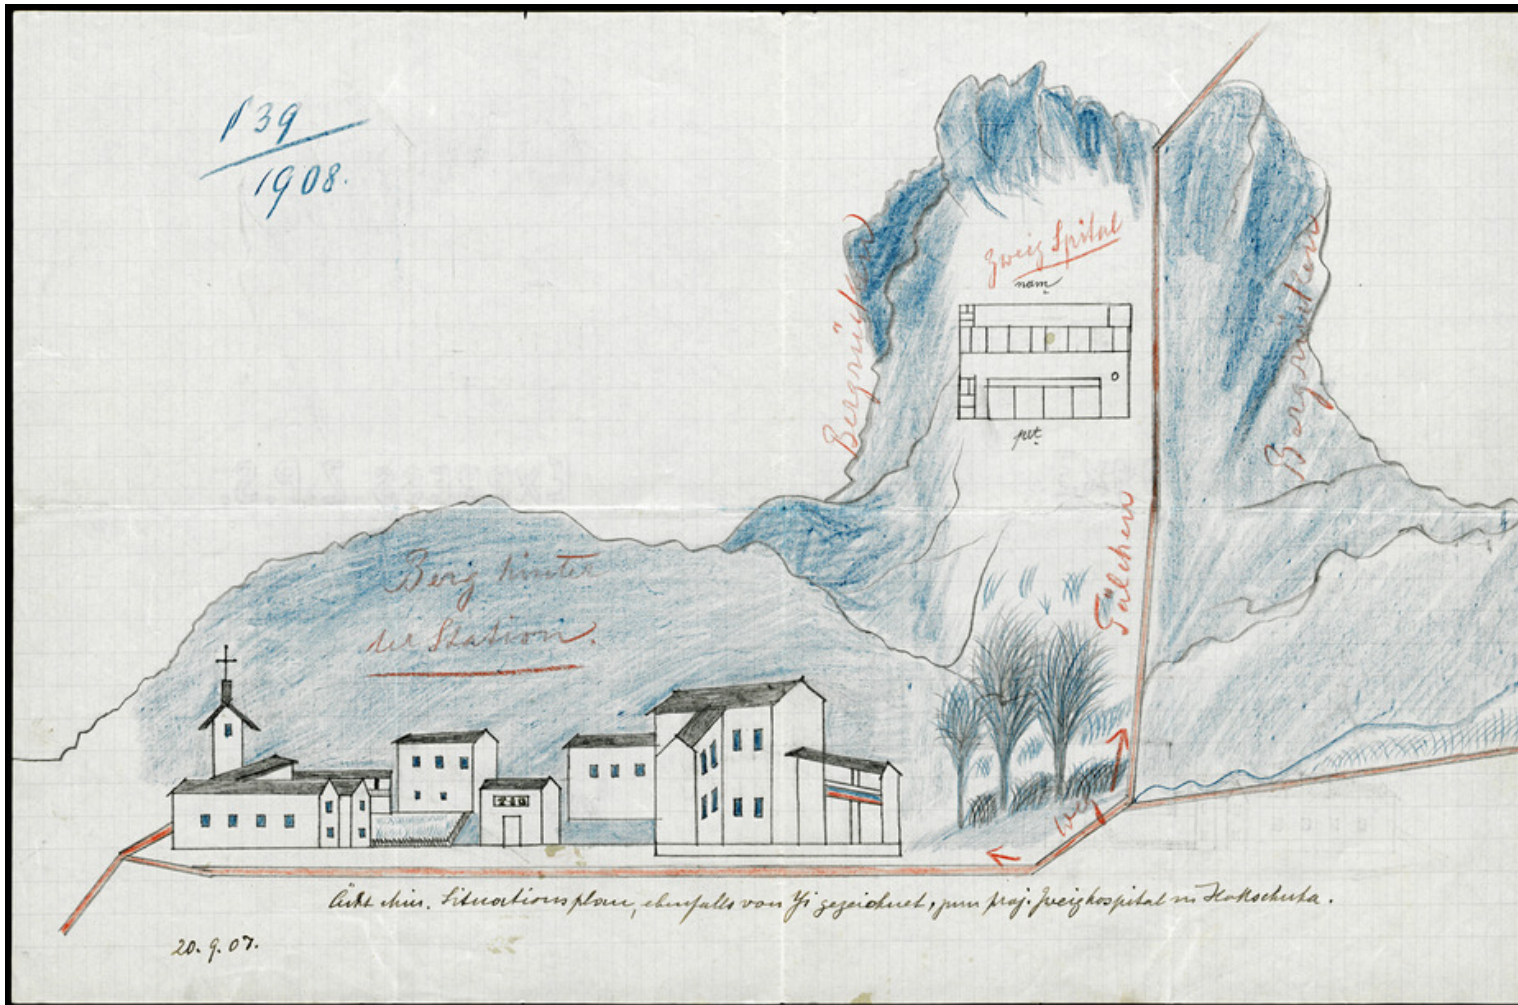 P 39
1908.
Zweig Spital
nam
Bergrücken
Bergrücken
pet
Tälchen
Berg hinter
der Station.
Weg
Ächt chin. Situationsplan, ebenfalls von Yi gezeichnet, zum proj. Zweighospital in Hokschuha.
20. 9. 07.